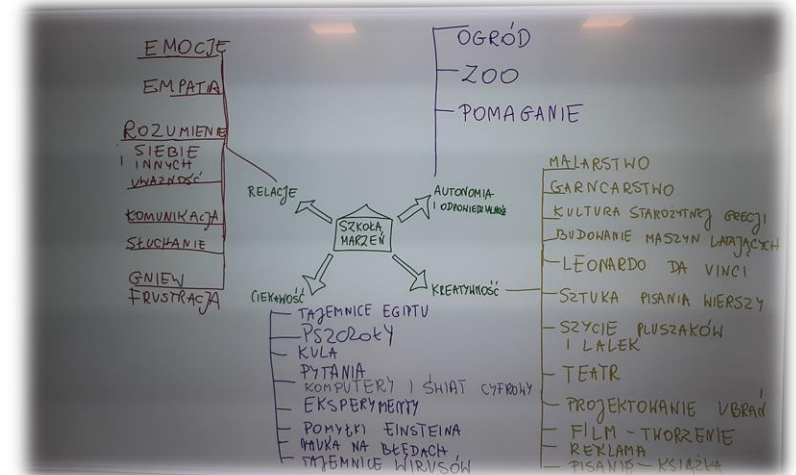 SZKOŁA
MARZEŃ
RELACJE
EMOCJE
EMPATIA
ROZUMIENIE
SIEBIE
I INNYCH
UWAŻNOŚĆ
KOMUNIKACJA
SŁUCHANIE
GNIEW
FRUSTRACJA
AUTONOMIA
I ODPOWIEDZIALNOŚĆ
OGRÓD
ZOO
POMAGANIE
CIEKAWOŚĆ
TAJEMNICE EGIPTU
PSZCZOŁY
KULA
PYTANIA
KOMPUTERY I ŚWIAT CYFROWY
EKSPERYMENTY
POMYŁKI EINSTEINA
NAUKA NA BŁĘDACH
TAJEMNICE WIRUSÓW
KREATYWNOŚĆ
MALARSTWO
GARNCARSTWO
KULTURA STAROŻYTNEJ GRECJI
BUDOWANIE MASZYN LATAJĄCYCH
LEONARDO DA VINCI
SZTUKA PISANIA WIERSZY
SZYCIE PLUSZAKÓW
I LALEK
TEATR
PROJEKTOWANIE UBRAŃ
FILM - TWORZENIE
REKLAMA
PISANIE - KSIĄŻKA